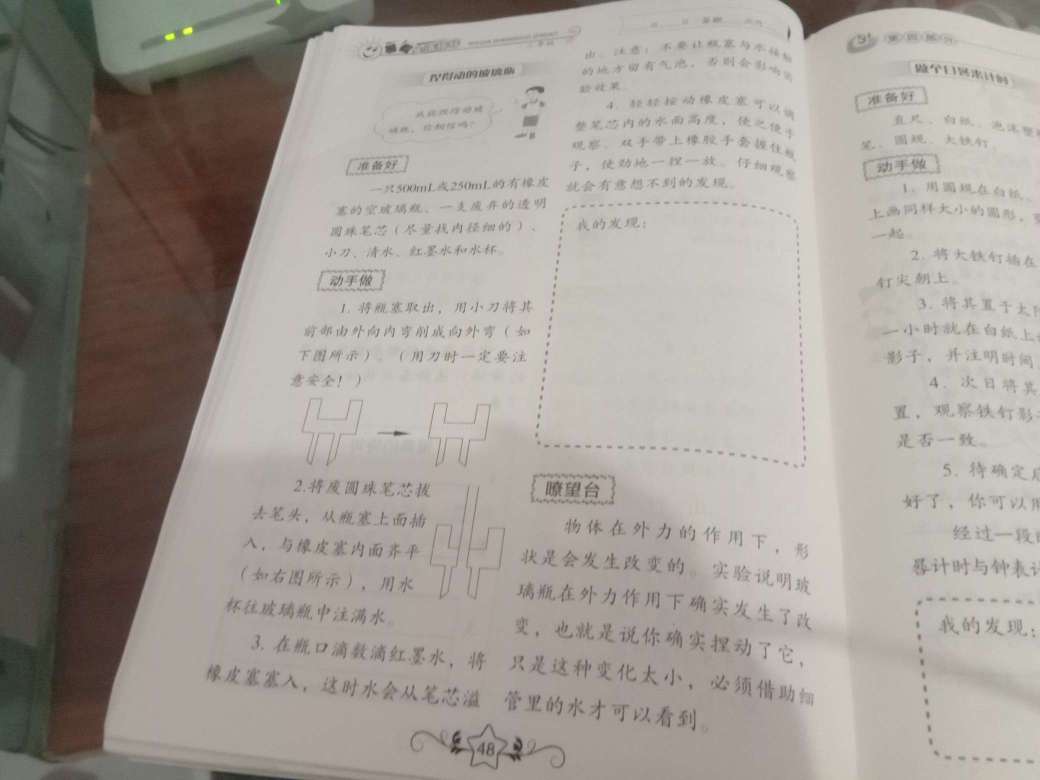 捏得动的玻璃瓶
准备好
一只500mL或250mL的有橡皮
塞的空玻璃瓶、一支废弃的透明
圆珠笔芯（尽量找内径细的）、
小刀、清水、红墨水和水杯。
动手做
1. 将瓶塞取出，用小刀将其
前部由外向内弯削成向外弯（如
下图所示）。（用刀时一定要注
意安全！）
2.将废圆珠笔芯拔
去笔头，从瓶塞上面插
入，与橡皮塞内面齐平
（如右图所示），用水
杯往玻璃瓶中注满水。
3. 在瓶口滴数滴红墨水，将
橡皮塞塞入，这时水会从笔芯溢
出。注意：不要让瓶塞与水接触
的地方留有气泡，否则会影响实
验效果。
4. 轻轻按动橡皮塞可以调
整笔芯内的水面高度，使之便于
观察。双手带上橡胶手套握住瓶
子，使劲地一捏一放。仔细观察
就会有意想不到的发现。
我的发现：
瞭望台
物体在外力的作用下，形
状是会发生改变的。实验说明玻
璃瓶在外力作用下确实发生了改
变，也就是说你确实捏动了它，
只是这种变化太小，必须借助细
管里的水才可以看到。
48
做个日晷来计时
准备好
直尺、白纸、泡沫塑
笔、圆规、大铁钉。
动手做
1. 用圆规在白纸、
上画同样大小的圆形，
一起。
2. 将大铁钉插在
钉尖朝上。
3. 将其置于太
一小时就在白纸上
影子，并注明时间
4. 次日将其
置，观察铁钉影
是否一致。
5. 待确定
好了，你可以用
经过一段
晷计时与钟表
我的发现：